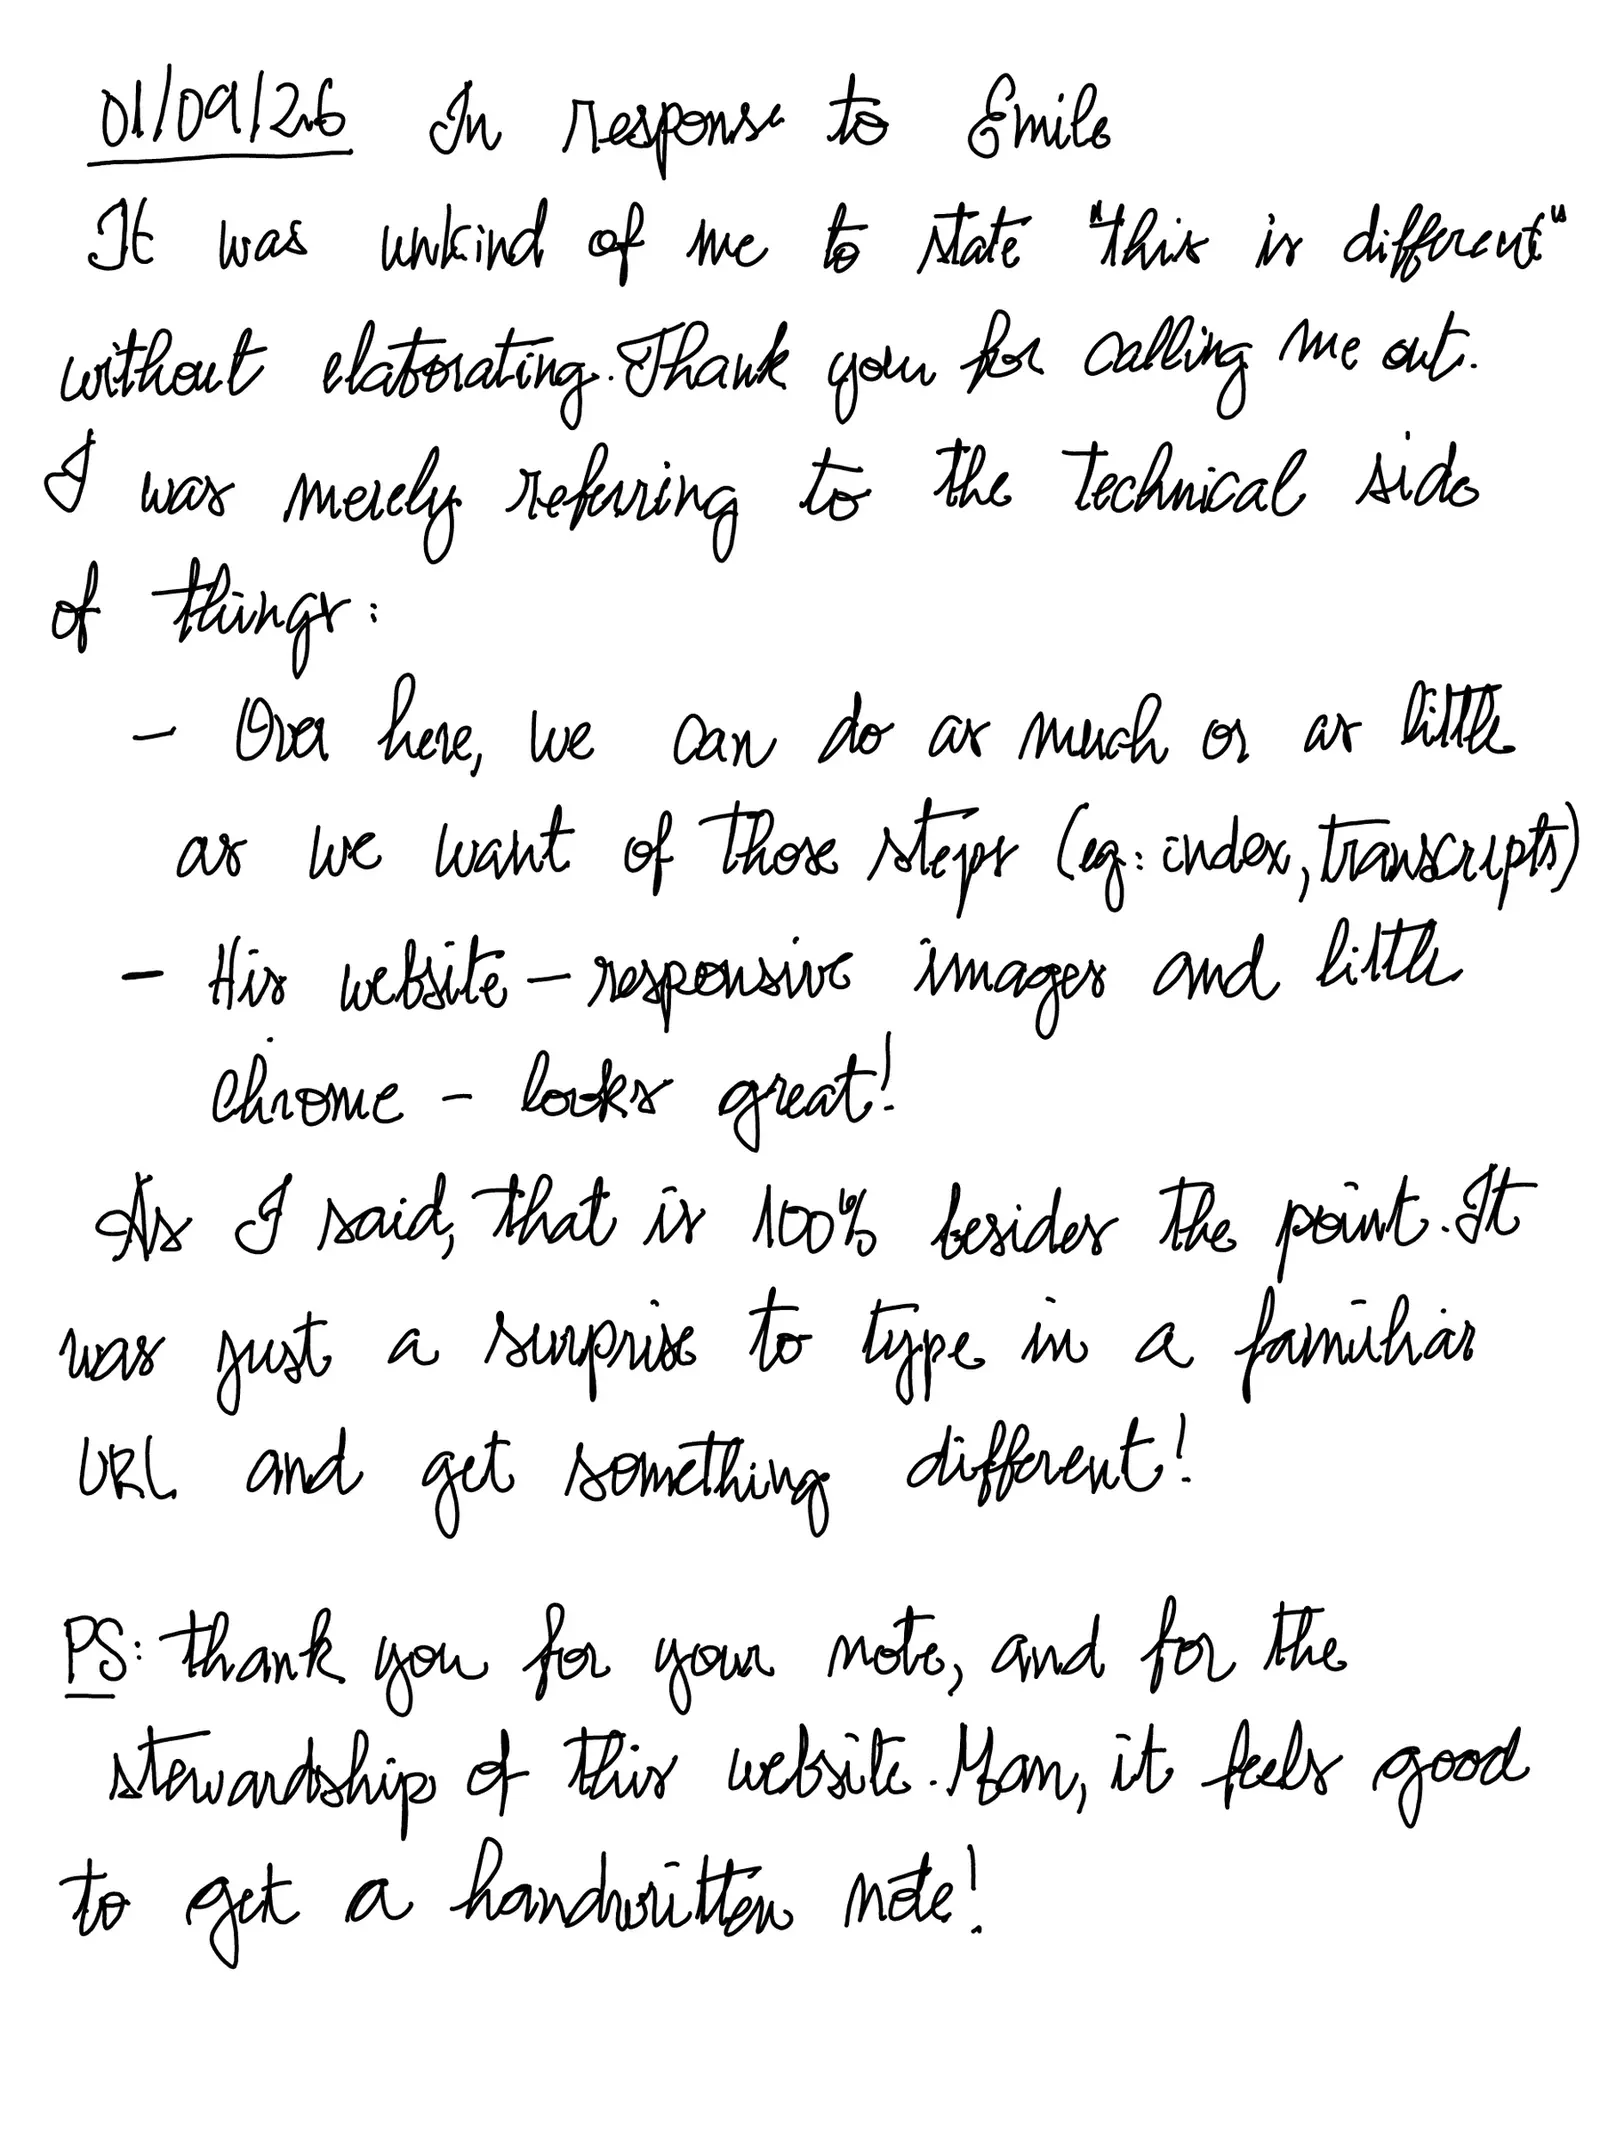 01/09/26 In response to Emile
It was unkind of me to state "this is different"
without elaborating. Thank you for calling me out.
I was merely referring to the technical side
of things:
- Over here, we can do as much or as little
as we want of those steps (eg: index, transcripts)
- His website - responsive images and little
chrome - looks great!
As I said, that is 100% besides the point. It
was just a surprise to type in a familiar
URL and get something different!
PS: thank you for your note, and for the
stewardship of this website. Man, it feels good
to get a handwritten note!